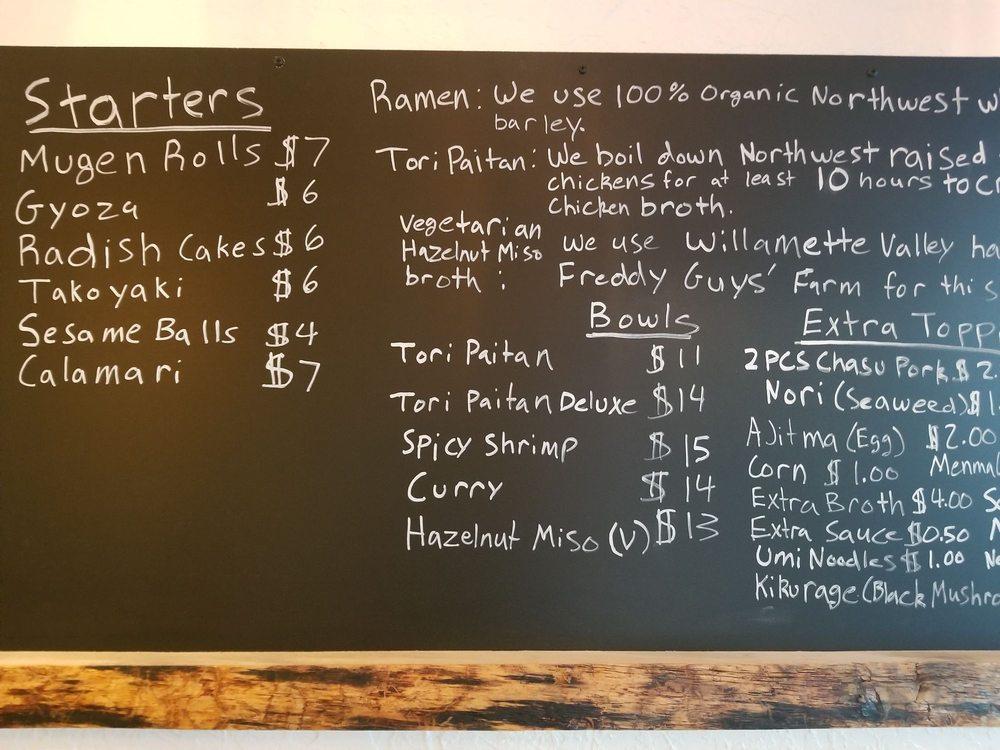 Starters
Mugen Rolls $7
Gyoza $6
Radish Cakes $6
Takoyaki $6
Sesame Balls $4
Calamari $7
Ramen: We use 100% Organic Northwest
barley.
Tori Paitan: We boil down Northwest raised
chickens for at least 10 hours to
chicken broth.
Vegetarian
Hazelnut Miso
broth: We use Willamette Valley
Freddy Guys' Farm for this
Bowls
Tori Paitan $11
Tori Paitan Deluxe $14
Spicy Shrimp $15
Curry $14
Hazelnut Miso (V) $13
Extra Topp
2 PCS Chasu Pork $2.
Nori (Seaweed) $1
Ajitma (Egg) $2.00
Corn $1.00 Menma
Extra Broth $4.00
Extra Sauce $0.50
Umi Noodles $1.00
Kikurage (Black Mushro